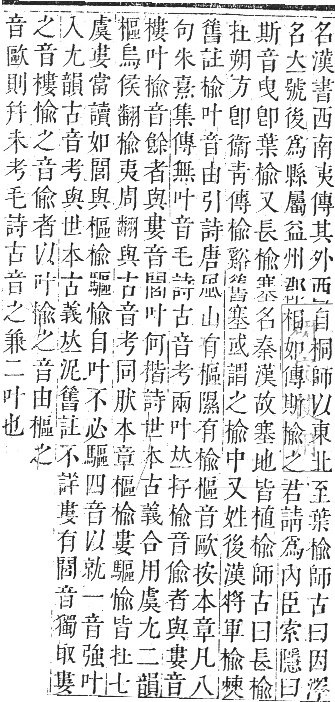 名漢書西南夷傳其外西自桐師以東北至葉楡師古曰因澤
名立號後爲縣屬益州郡相如傳斯楡之君請爲內臣索隱曰
斯音曳卽葉楡又長楡塞名秦漢故塞地皆植楡師古曰長楡
在朔方卽衞靑傳楡谿舊塞或謂之楡中又姓後漢將軍楡棘
舊註楡叶音由引詩唐風山有樞隰有楡樞音歐按本章凡八
句朱熹集傳無叶音毛詩古音考兩叶𠀤存楡音偸者與婁音
樓叶楡音餘者與婁音閭叶何楷詩世本古義合用虞尤二韻
樞烏侯翻楡夷周翻與古音考同肰本章樞楡婁驅愉皆在七
虞婁當讀如閭與樞楡驅愉自叶不必驅四音以就一音強叶
入尤韻古音考與世本古義𠀤泥舊註不詳婁有閭音獨取婁
之音樓愉之音偸者以叶楡之音由樞之
音歐則幷未考毛詩古音之兼二叶也